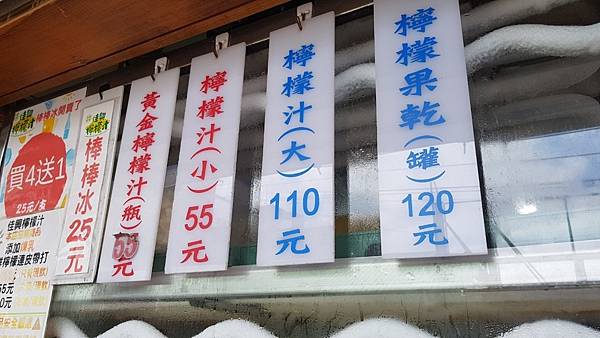 棒棒冰開賣了
買4送1
25元/支
佳興檸檬汁
添加煉乳
檸檬連皮帶打
棒棒冰
25元
黃金檸檬汁(瓶)
55元
檸檬汁(小)
55元
檸檬汁(大)
110元
檸檬果乾(罐)
120元